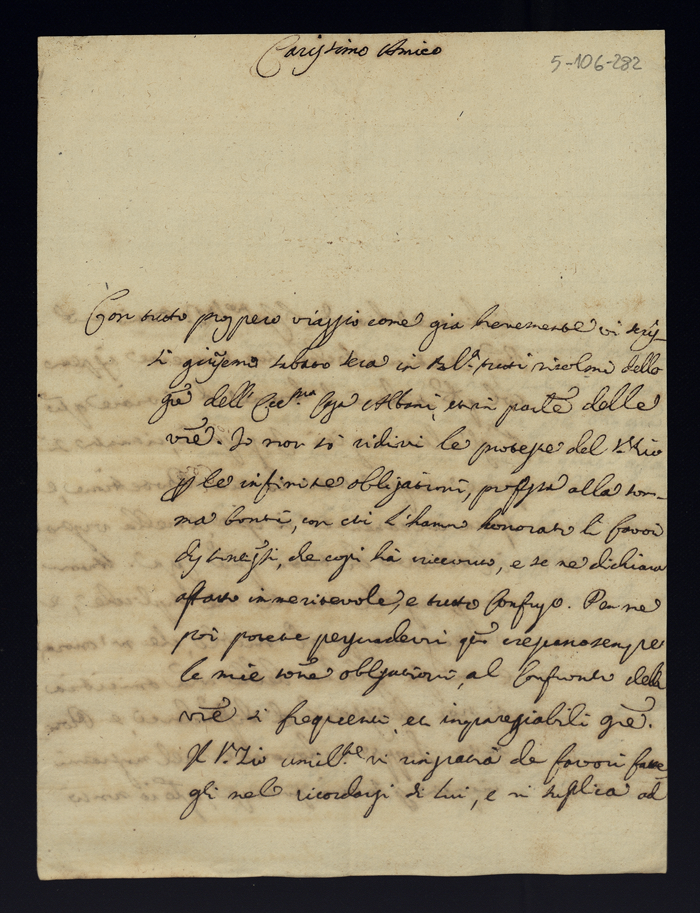 Carissimo Amico
5-106-282
Con tutto prospero viaggio come già brevemente vi scris-
si giunsemo sabato sera in tutti ricolmi delle
gre dell' Ecc.ma Casa Albani, et in parte delle
vre. Io non sò ridirvi le proteste del S.r Zio
p le infinite obligationi, professa alla som-
ma bontà, con cui l'hanno honorato li favori
da cotesti, che costì hà ricevuto, e se ne dichiara
affatto immeritevole, e tutto confuso. Per me
poi potete persuadervi che crescano sempre
le mie obligationi, al confronto delle
vre sì frequenti, et impareggiabili gre.
Il S.r Zio umil.te vi ringratia de favori fatte
gli nel ricordarsi di lui, e vi suplica ad